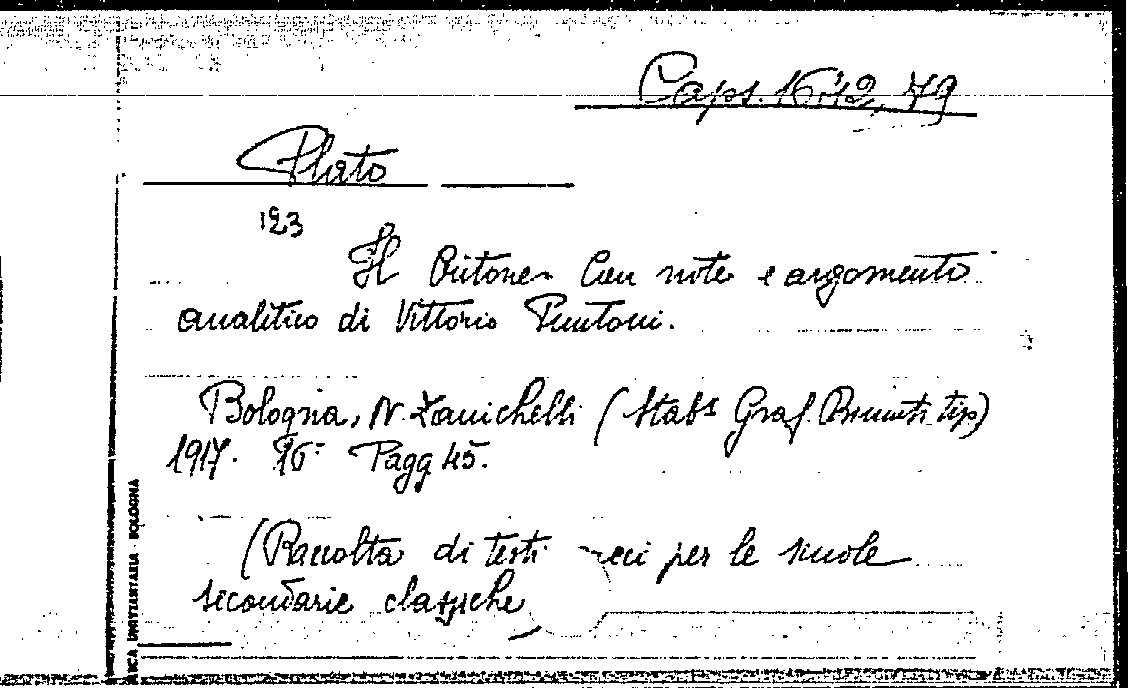 Caps. 1642, 79
Plato
123
Il Critone. Con note e argomento
analitico di Vittorio Puntoni.
Bologna, N. Zanichelli (Stab. Graf. tip)
1917. 16° Pagg 45.
(Raccolta di testi per le scuole
secondarie classiche
BOLOGNA